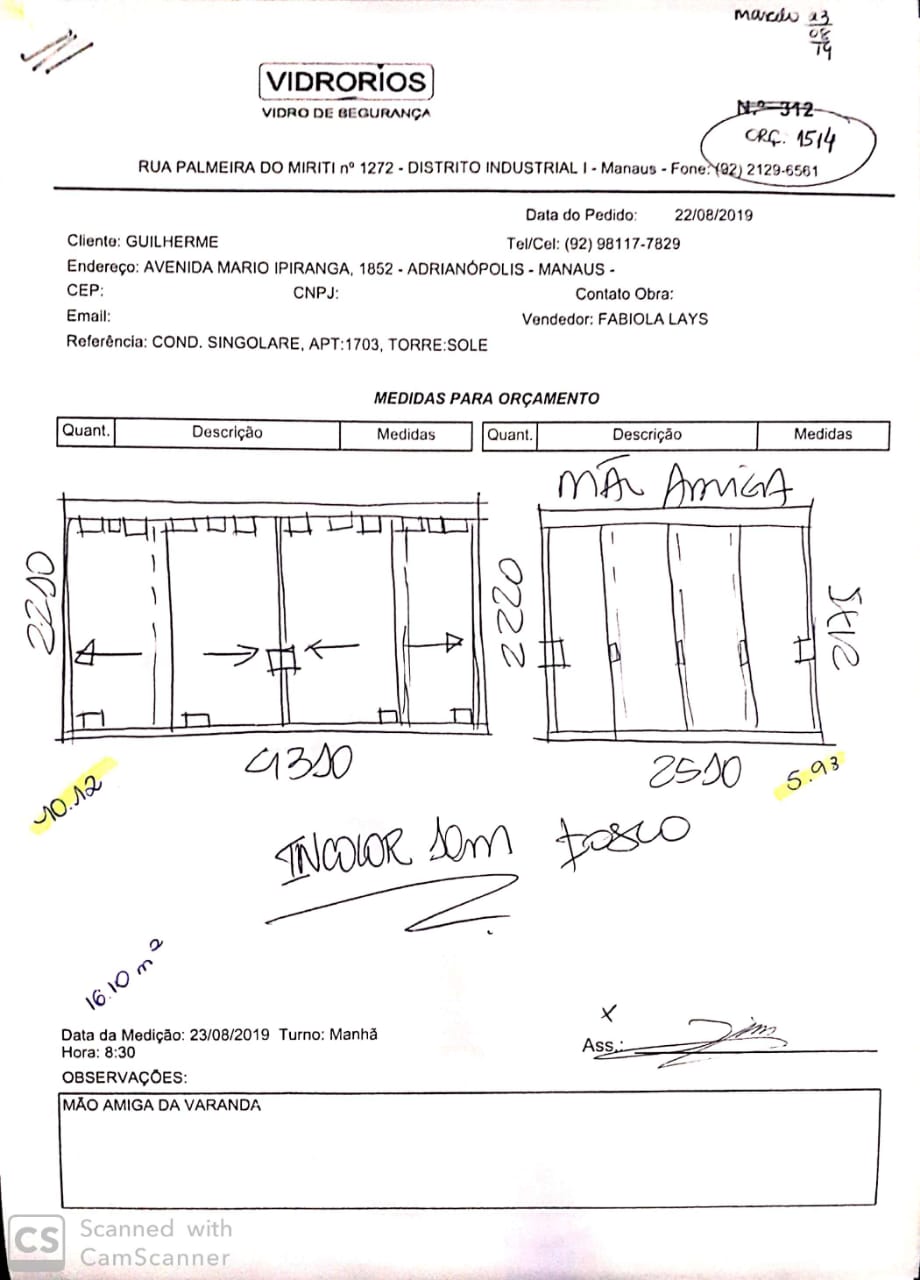 23
08
19
VIDRORIOS
VIDRO DE SEGURANÇA
N.º 312
ORÇ. 1514
RUA PALMEIRA DO MIRITI nº 1272 - DISTRITO INDUSTRIAL I - Manaus - Fone: (92) 2129-6561
Data do Pedido: 22/08/2019
Cliente: GUILHERME Tel/Cel: (92) 98117-7829
Endereço: AVENIDA MARIO IPIRANGA, 1852 - ADRIANÓPOLIS - MANAUS -
CEP: CNPJ: Contato Obra:
Email: Vendedor: FABIOLA LAYS
Referência: COND. SINGOLARE, APT:1703, TORRE:SOLE
MEDIDAS PARA ORÇAMENTO
Quant. Descrição Medidas Quant. Descrição Medidas
MÃO AMIGA
2210
2220
4310
2510
10.12
5.93
INCOLOR SEM FOSCO
16.10 m²
Data da Medição: 23/08/2019 Turno: Manhã
Hora: 8:30
x
Ass.:
OBSERVAÇÕES:
MÃO AMIGA DA VARANDA
CS Scanned with
CamScanner